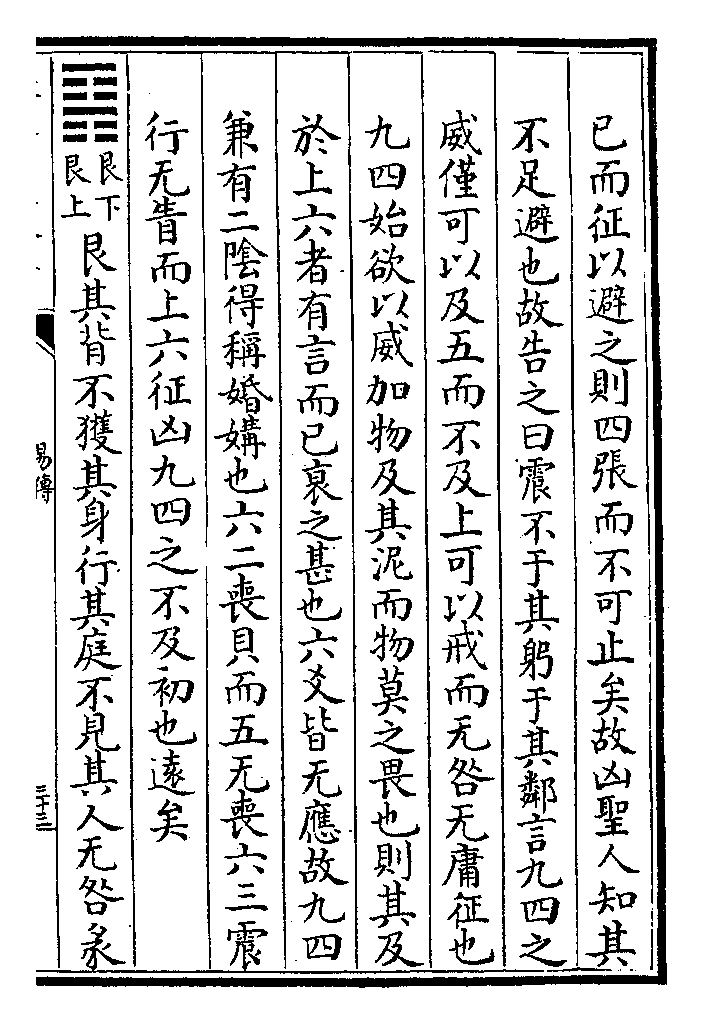 已而征以避之則四張而不可止矣故凶聖人知其
不足避也故告之曰震不于其躬于其鄰言九四之
威僅可以及五而不及上可以戒而无咎无庸征也
九四始欲以威加物及其泥而物莫之畏也則其及
於上六者有言而已哀之甚也六爻皆无應故九四
兼有二陰得稱婚媾也六二喪貝而五无喪六三震
行无眚而上六征凶九四之不及初也遠矣
䷳艮下艮上艮其背不獲其身行其庭不見其人无咎彖
易傳
三十三